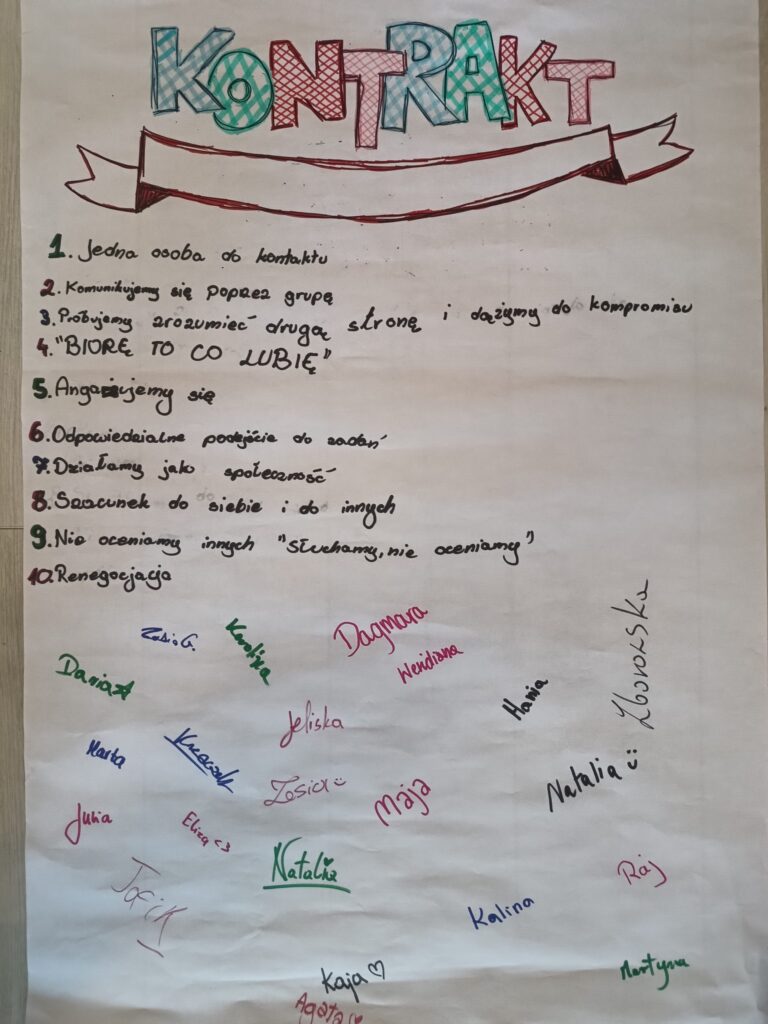 KONTRAKT
1. Jedna osoba do kontaktu
2. Komunikujemy się poprzez grupę
3. Próbujemy zrozumieć drugą stronę i dążymy do kompromisu
4. "BIORĘ TO CO LUBIĘ"
5. Angażujemy się
6. Odpowiedzialne podejście do zadań
7. Działamy jako społeczność
8. Szacunek do siebie i do innych
9. Nie oceniamy innych "Słuchamy, nie oceniamy"
10. Renegocjacja
Zosia G.
Karolina
Dagmara
Weridiana
Daria
Hania
Zborowska
Jeliska
Marta
Zosia
Maja
Natalia
Julia
Eliza <3
Natalia
Raj
Kalina
Kaja ♡
Martyna
Agata